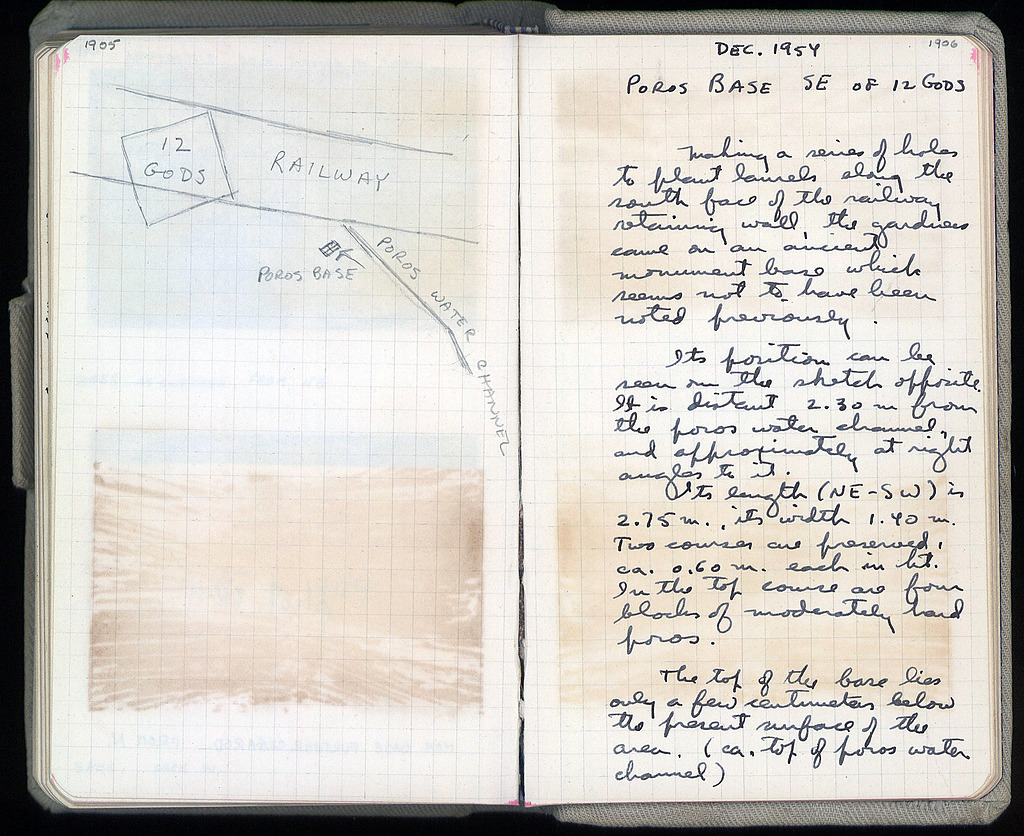 1905
12
GODS
RAILWAY
POROS BASE
POROS WATER CHANNEL
1906
DEC. 1954
POROS BASE SE OF 12 GODS
Making a series of holes
to plant laurels along the
south face of the railway
retaining wall, the gardners
came on an ancient
monument base which
seems not to have been
noted previously.
Its position can be
seen on the sketch opposite.
It is distant 2.30 m from
the poros water channel,
and approximately at right
angles to it.
Its length (NE-SW) is
2.75 m., its width 1.40 m.
Two courses are preserved,
ca. 0.60 m. each in ht.
In the top course are four
blocks of moderately hard
poros.
The top of the base lies
only a few centimeters below
the present surface of the
area. (ca. top of poros water
channel)